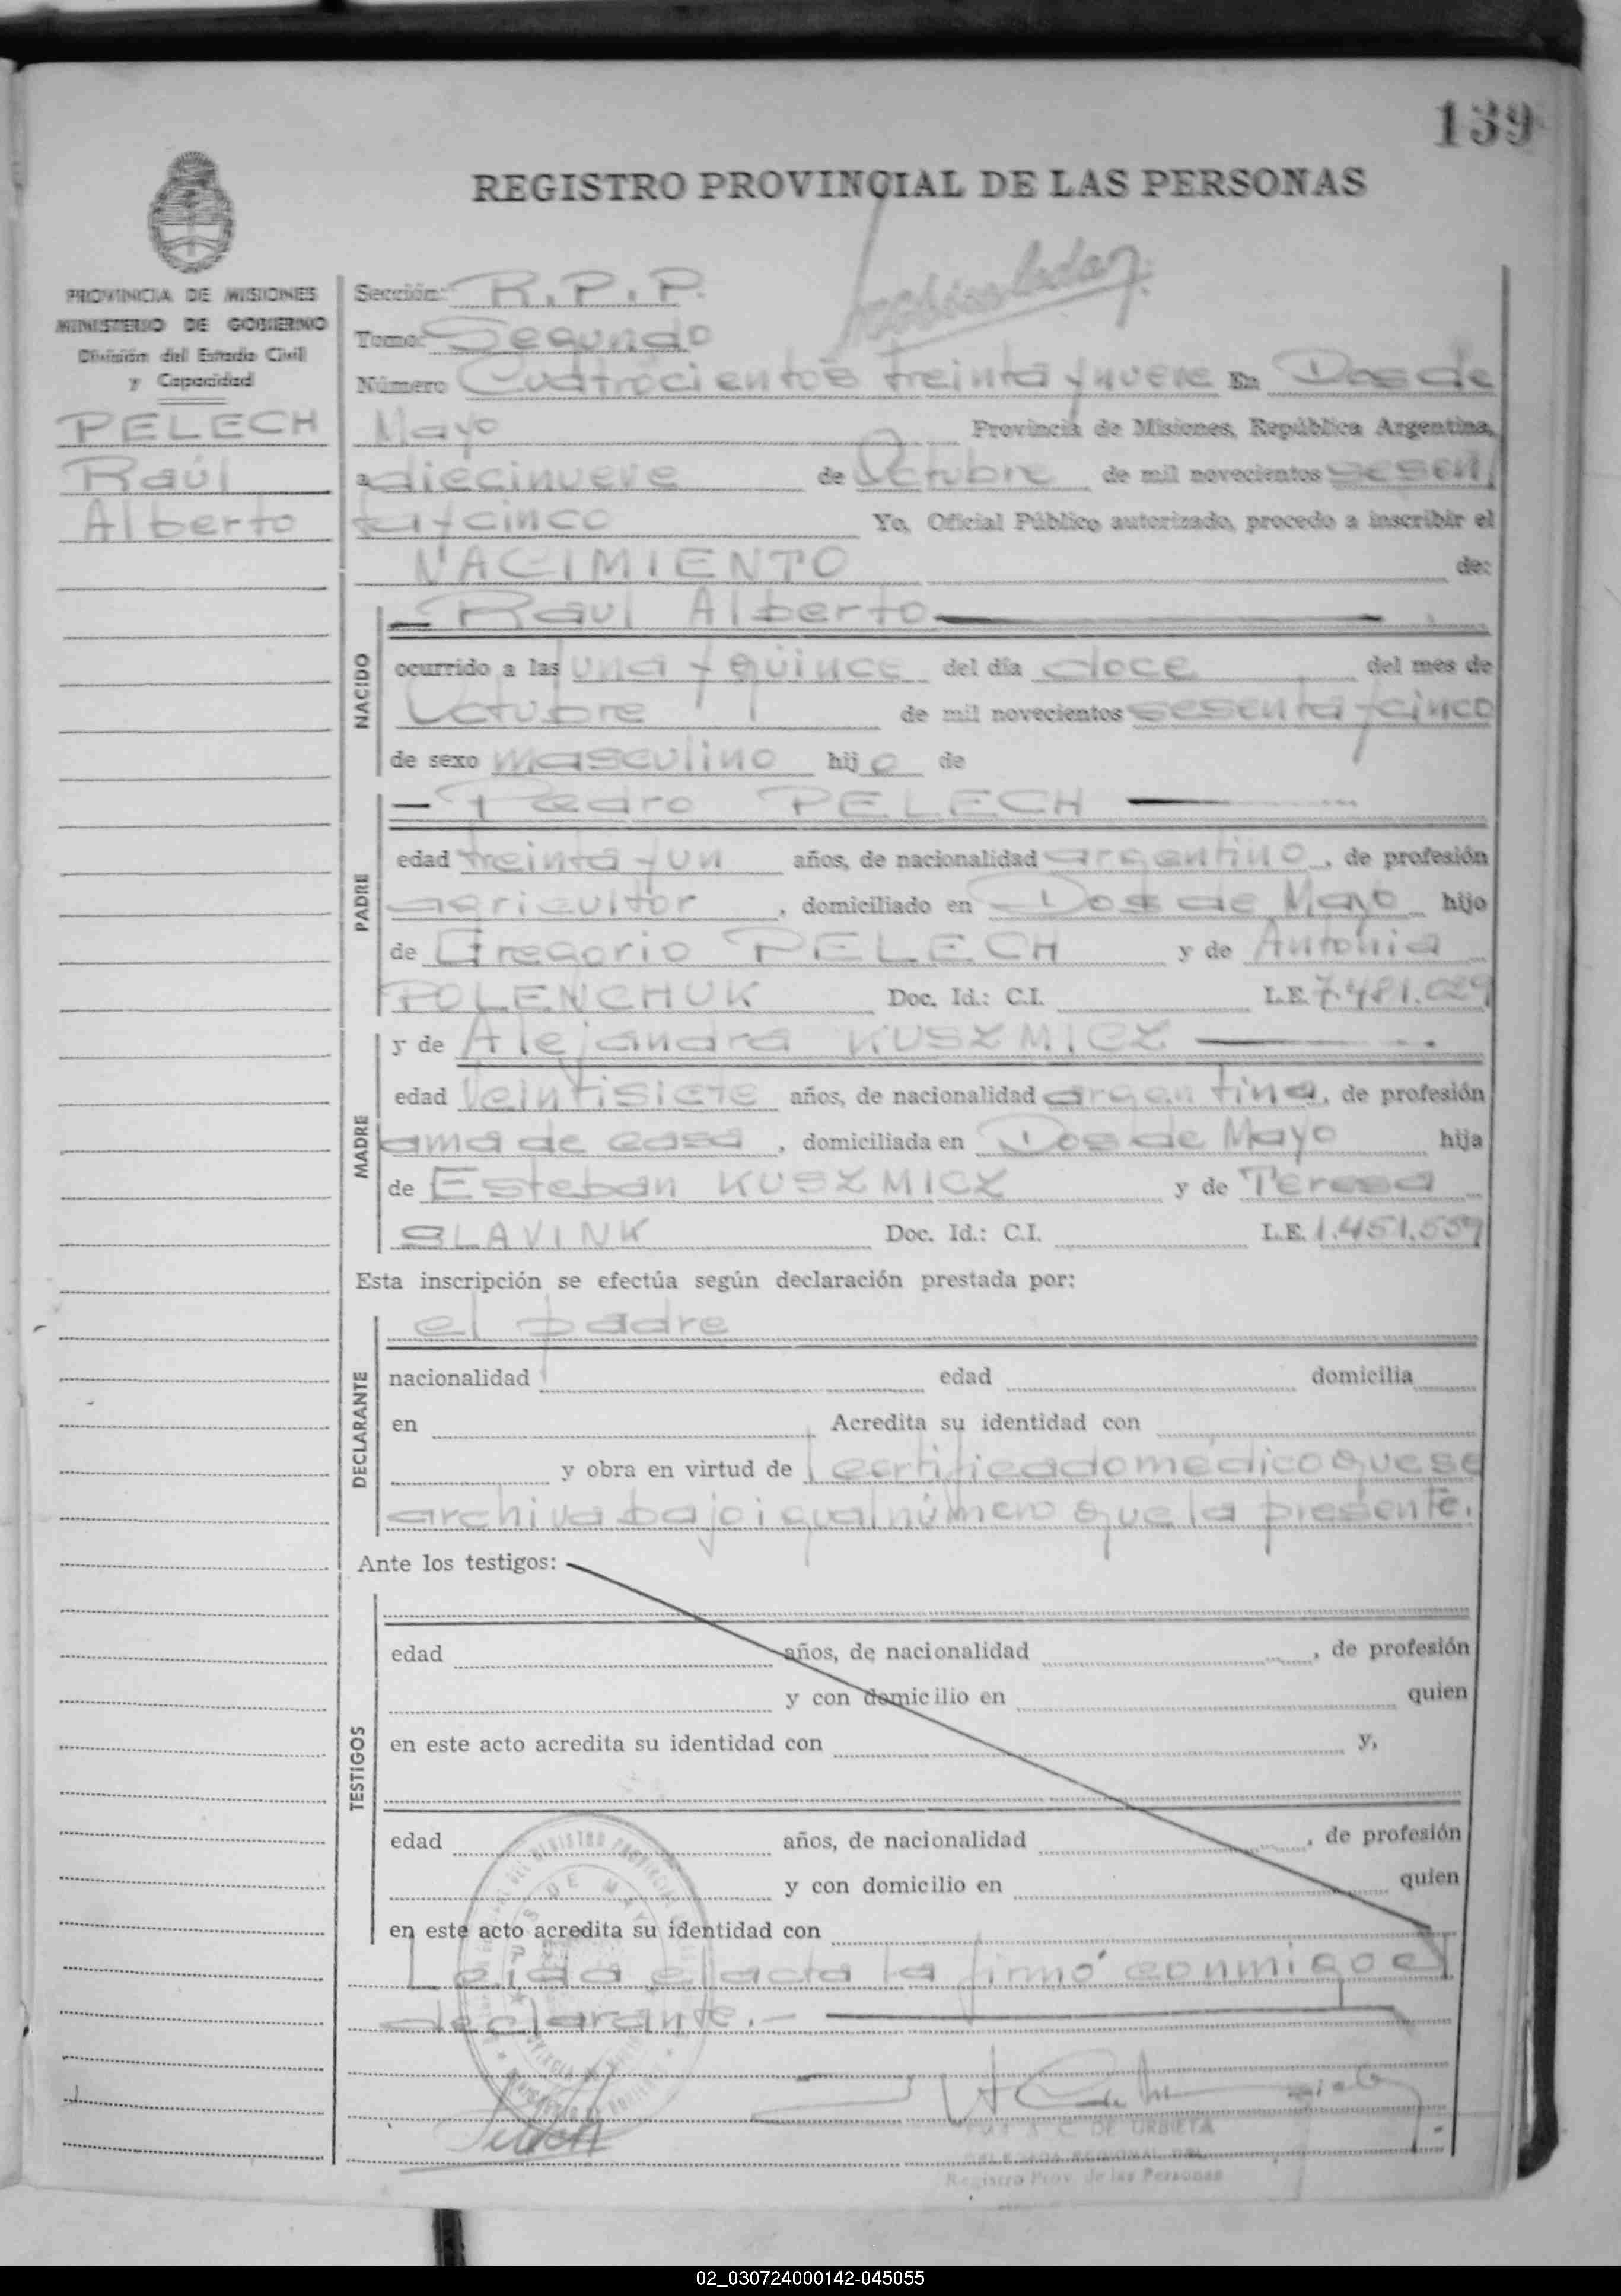 139
REGISTRO PROVINCIAL DE LAS PERSONAS
PROVINCIA DE MISIONES
MINISTERIO DE GOBIERNO
División del Estado Civil
y Capacidad
PELECH
Raúl
Alberto
Sección: R.P.P.
Tomo: Segundo
Número Cuatrocientos treinta y nueve En Dos de
Mayo Provincia de Misiones, República Argentina,
a diecinueve de Octubre de mil novecientos sesen
ta y cinco Yo, Oficial Público autorizado, procedo a inscribir el
NACIMIENTO de:
NACIDO
Raul Alberto
ocurrido a las una y quince del día doce del mes de
Octubre de mil novecientos sesenta y cinco
de sexo masculino hijo de
PADRE
Pedro PELECH
edad treinta y un años, de nacionalidad argentino, de profesión
agricultor, domiciliado en Dos de Mayo hijo
de Gregorio PELECH y de Antonia
POLENCHUK Doc. Id.: C.I. L.E. 7.481.029
MADRE
y de Alejandra KUSZMICZ
edad veintisiete años, de nacionalidad argentina, de profesión
ama de casa, domiciliada en Dos de Mayo hija
de Esteban KUSZMICZ y de Teresa
SLAVINK Doc. Id.: C.I. L.E. 1.451.559
Esta inscripción se efectúa según declaración prestada por:
DECLARANTE
el padre
nacionalidad edad domicilia
en Acredita su identidad con
y obra en virtud de certificado médico que se
archiva bajo igual número que la presente.
Ante los testigos:
TESTIGOS
edad años, de nacionalidad , de profesión
y con domicilio en quien
en este acto acredita su identidad con y,
edad años, de nacionalidad , de profesión
y con domicilio en quien
en este acto acredita su identidad con
Leída el acta la firmó conmigo el
declarante.-
DE URBIETA
DELEGADA REGIONAL DEL
Registro Prov. de las Personas
02_030724000142-045055